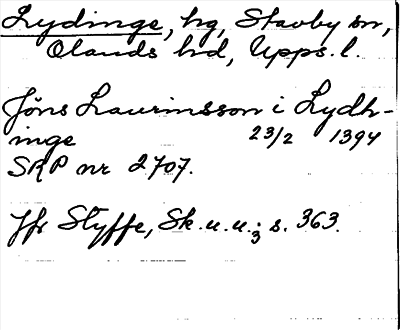 Lydinge, hg, Stavby sn,
Olands hd, Upps. l.
Jöns Laurinsson i Lydh-
inge 23/2 1394
SRP nr 2707.
Jfr Styffe, Sk. u. u. 3 s. 363.